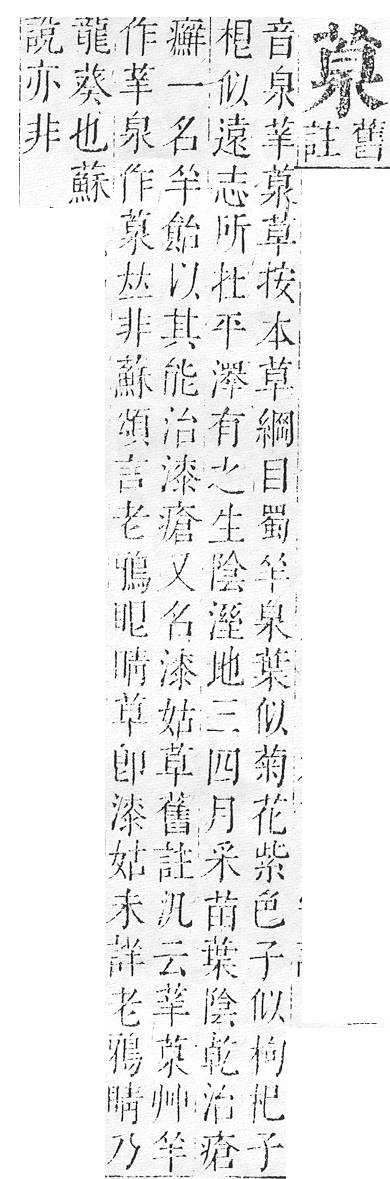 葲
舊
註
音泉䒷葲草按本草綱目蜀羊泉葉似菊花紫色子似枸杞子
根似遠志所在平澤有之生陰溼地三四月采苗葉陰乾治瘡
癬一名羊飴以其能治漆瘡又名漆姑草舊註汎云䒷葲艸羊
作䒷泉作葲𠀤非蘇頌言老鴉眼睛草卽漆姑未詳老鴉睛乃
龍葵也蘇
說亦非